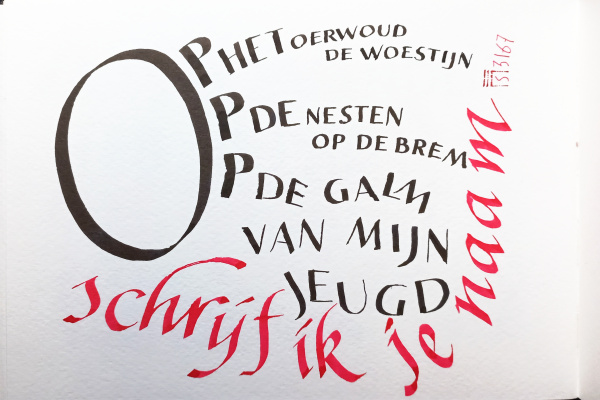 OP HET OERWOUD
DE WOESTIJN
P DE NESTEN
OP DE BREM
P DE GALM
VAN MIJN
JEUGD
schrijf ik je naam